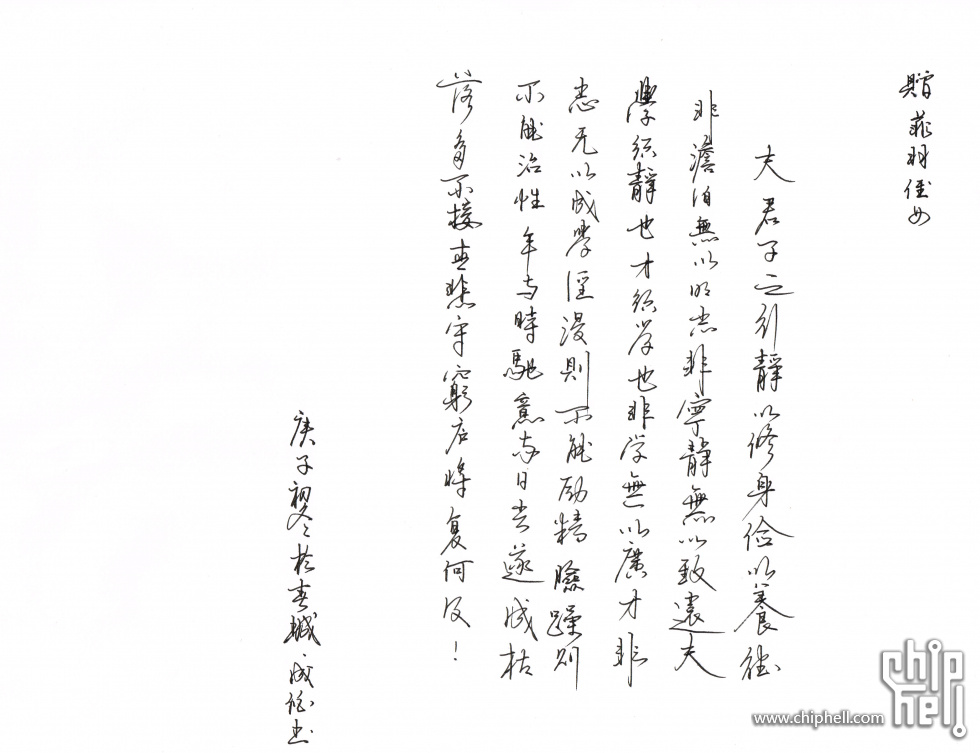 贈菲羽侄女
夫君子之行靜以修身俭以養德
非澹泊無以明志非寧靜無以致遠夫
學须靜也才须学也非学無以廣才非
志无以成學淫漫則不能励精險躁则
不能治性年与時馳意与日去遂成枯
落多不接世悲守窮庐将复何及！
庚子初冬於春城·成书
chip
hell
www.chiphell.com